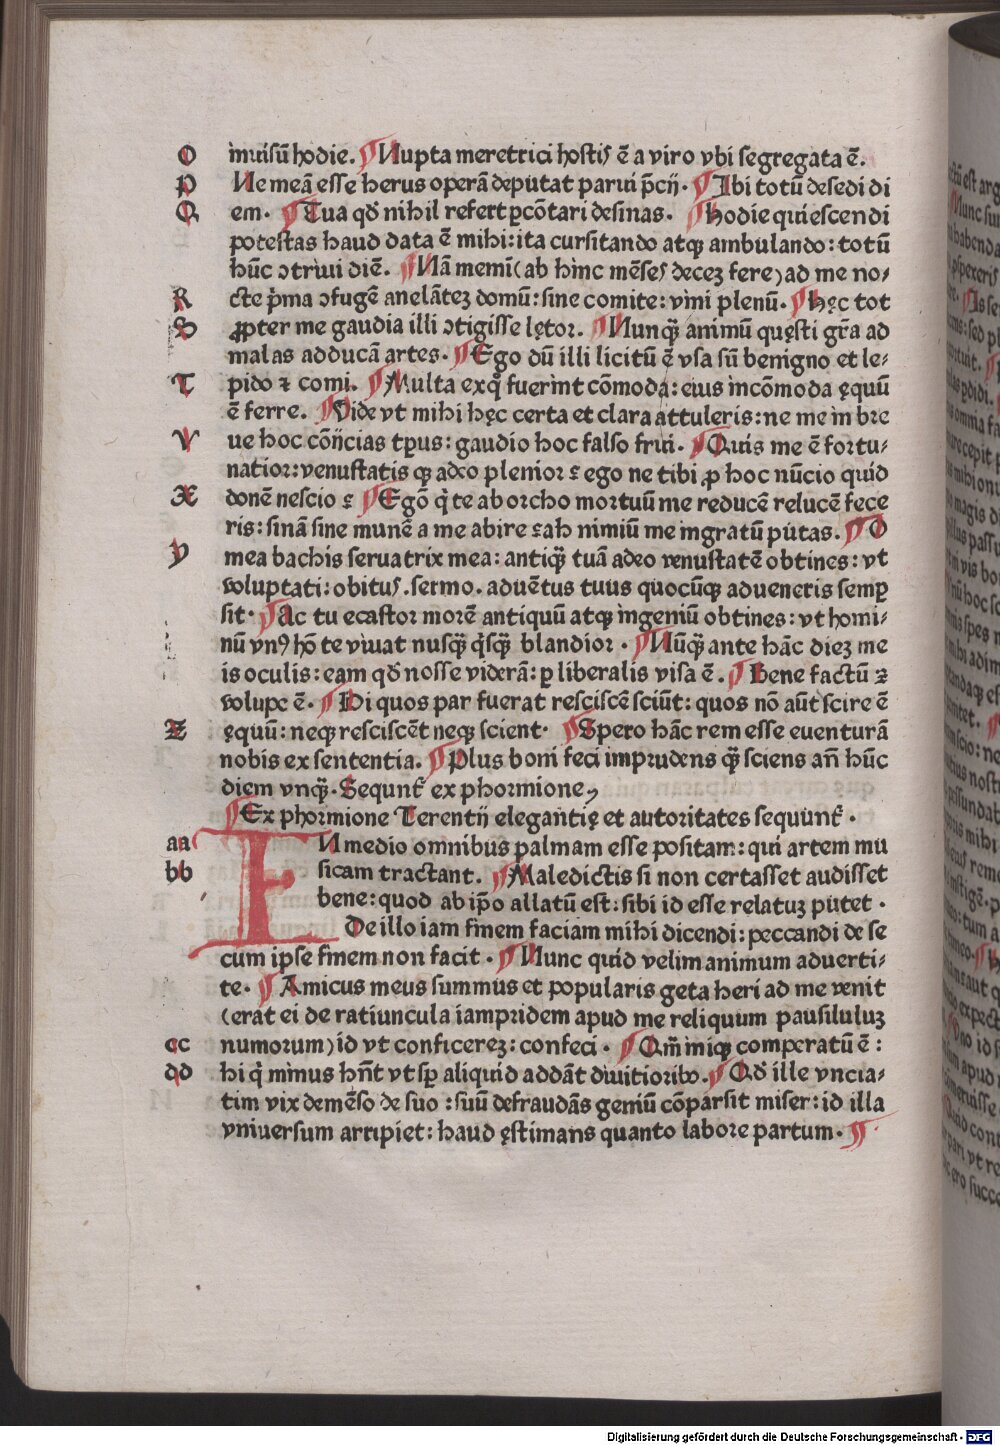 O inuisū hodie. ¶ Nupta meretrici hostis ē a viro vbi segregata ē.
P Ne meā esse herus operā deputat parui p̄cij. ¶ Ibi totū desedi di
Q em. ¶ Tua qđ nihil refert ꝑcōtari desinas. ¶ Hodie quiescendi
potestas haud data ē mihi: ita cursitando atqꝫ ambulando: totū
hūc ↄtriui diē. ¶ Nā memī(ab hinc mēses decez fere)ad me no⸗
R cte p̄ma ↄfugē anelātez domū: sine comite: vini plenū. ¶ Hęc tot
S ꝓpter me gaudia illi ↄtigisse lętor. ¶ Nunqꝫ̄ animū quęsti gr̄a ad
malas adducā artes. ¶ Ego dū illi licitū ē vsa sū benigno et le⸗
T pido ꝛ comi. ¶ Multa ex q̊ fuerint cōmoda: eius incōmoda ęquū
ē ferre. ¶ Vide vt mihi hęc certa et clara attuleris: ne me in bre
V ue hoc cōijcias tp̄us: gaudio hoc falso frui. ¶ Quis me ē fortu⸗
natior: venustatis qꝫ adeo plenior ꝛ ego ne tibi ꝓ hoc nūcio quid
X donē nescio ꝛ ¶ Egō q̇ te ab orcho mortuū me reducē relucē fece
ris: sinā sine munē a me abire ꝛ ah nimiū me ingratū putas. ¶ O
Y mea bachis seruatrix mea: antiqꝫ̄ tuā adeo venustatē obtines: vt
voluptati: obitus. sermo. aduētus tuus quocūqꝫ adueneris semꝑ
sit. ¶ Ac tu ecastor morē antiquū atqꝫ ingeniū obtines: vt homi⸗
nū vnꝰ hō te viuat nusqꝫ̄ q̇sqꝫ̄ blandior. ¶ Nūqꝫ̄ ante hāc diez me
is oculis: eam qđ nosse viderā: ꝑ liberalis visa ē. ¶ Bene factū ꝛ
volupe ē. ¶ Di quos par fuerat resciscē sciūt: quos nō aūt scire ē
Z ęquū: neqꝫ rescisčēt neqꝫ scient. ¶ Spero hāc rem esse euenturā
nobis ex sententia. ¶ Plus boni feci imprudens qꝫ̄ sciens añ hūc
diem vnqꝫ̄. Sequnt̃ ex phormione
¶ Ex phormione Terentij elegantię et autoritates sequunt̃.
aa EN medio omnibus palmam esse positam: qui artem mu
bb sicam tractant. ¶ Maledictis si non certasset audisset
bene: quod ab ip̄o allatū est: sibi id esse relatuz putet.
De illo iam finem faciam mihi dicendi: peccandi de se
cum ipse finem non facit. ¶ Nunc quid velim animum aduerti⸗
te. ¶ Amicus meus summus et popularis geta heri ad me venit
(erat ei de ratiuncula iampridem apud me reliquum pausiluluz
cc numorum)id vt conficerez: confeci. ¶ Qm̄ iniqꝫ comperatū ē:
dd hi q̇ minus hn̄t vt sꝑ aliquid addāt diuitioribꝰ. ¶ Qđ ille vncia⸗
tim vix demēso de suo: suū defraudās geniū cōparsit miser: id illa
vniuersum arripiet: haud ęstimans quanto labore partum. ¶
Digitalisierung gefördert durch die Deutsche Forschungsgemeinschaft - DFG